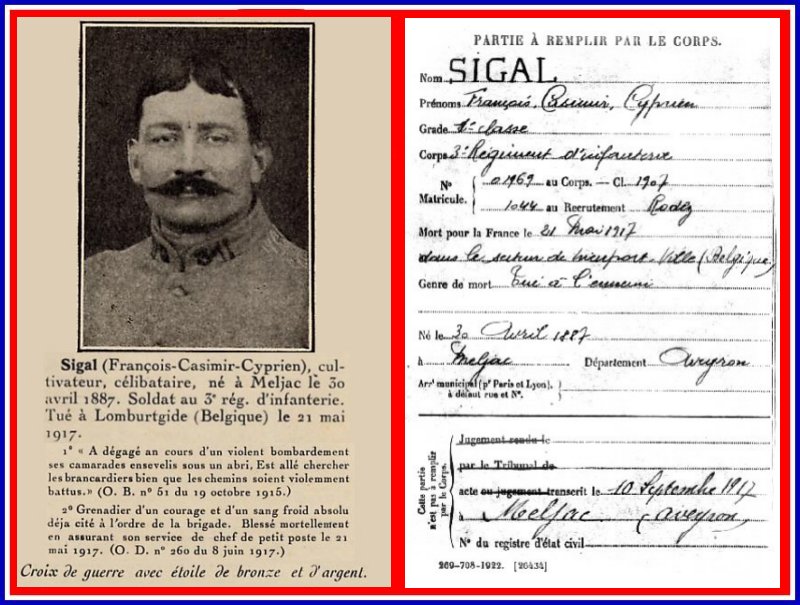 Sigal (François-Casimir-Cyprien), cul-
tivateur, célibataire, né à Meljac le 30
avril 1887. Soldat au 3e rég. d'infanterie.
Tué à Lomburtgide (Belgique) le 21 mai
1917.
1° « A dégagé an cours d'un violent bombardement
ses camarades ensevelis sous un abri, Est allé chercher
les brancardiers bien que les chemins soient violemment
battus.» (O. B. n° 51 du 19 octobre 1915.)
2° Grenadier d'un courage et d'un sang froid absolu
déja cité à l'ordre de la brigade. Blessé mortellement
en assurant son service de chef de petit poste le 21
mai 1917. (O. D. n° 260 du 8 juin 1917.)
Croix de guerre avec étoile de bronze et d'argent.
PARTIE À REMPLIR PAR LE CORPS.
Nom SIGAL
Prénoms François, Casimir, Cyprien
Grade 1e classe
Corps 3e Régiment d'infanterie
N° Matricule. 01969 au Corps. — Cl. 1907
1044 au Recrutement Rodez
Mort pour la France le 21 Mai 1917
dans le secteur de Nieuport-Ville (Belgique)
Genre de mort Tué à l'ennemi
Né le 30 Avril 1887
à Meljac Département Aveyron
Arrt municipal (pr Paris et Lyon),
à défaut rue et N°.
Cette partie n'est pas à remplir par le Corps.
Jugement rendu le
par le Tribunal de
acte ou jugement transcrit le 10 Septembre 1917
à Meljac (Aveyron)
N° du registre d'état civil
269-708-1922. [26434]